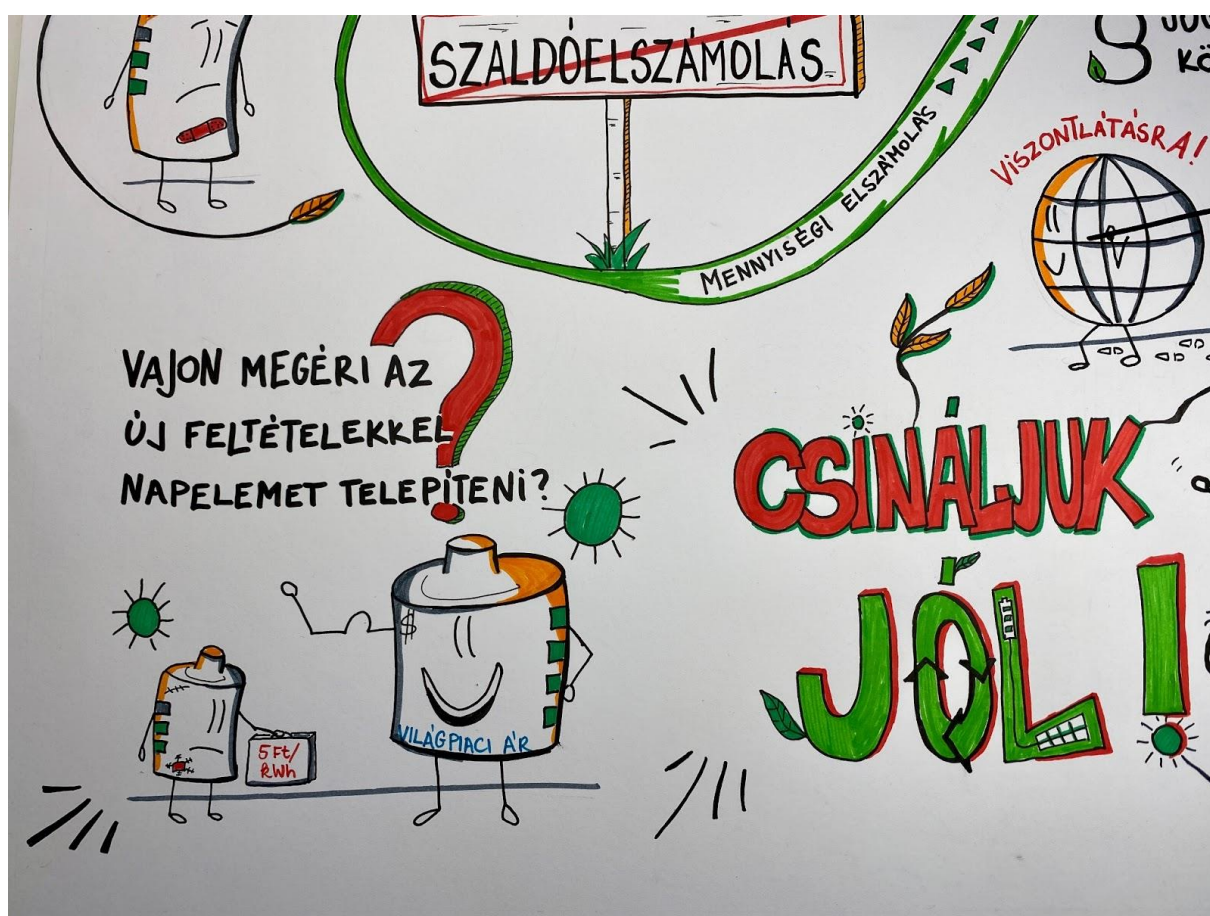 SZALDÓELSZÁMOLÁS
MENNYISÉGI ELSZÁMOLÁS
VISZONTLÁTÁSRA!
VAJON MEGÉRI AZ
ÚJ FELTÉTELEKKEL
NAPELEMET TELEPÍTENI?
?
CSINÁLJUK
JÓL!
$
VILÁGPIACI ÁR
5 Ft/
kWh